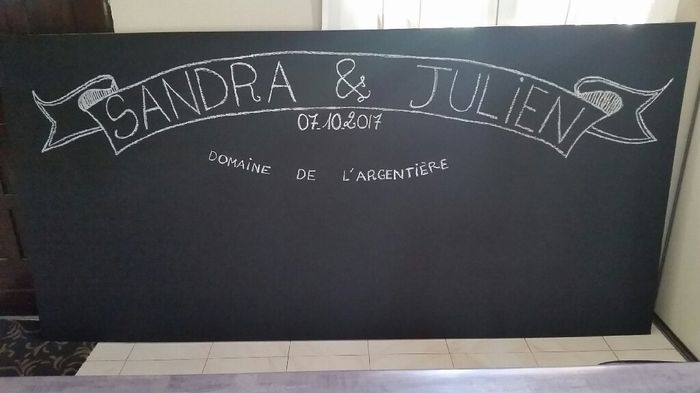 SANDRA & JULIEN
07.10.2017
DOMAINE DE L'ARGENTIÈRE